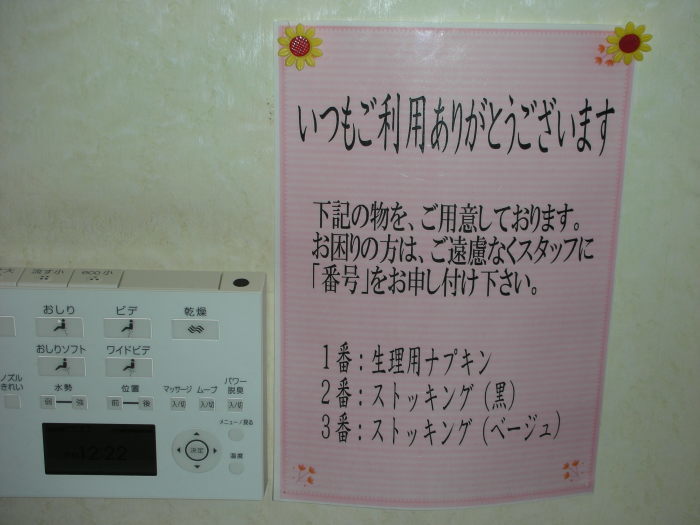 いつもご利用ありがとうございます
下記の物を、ご用意しております。
お困りの方は、ご遠慮なくスタッフに
「番号」をお申し付け下さい。
1番：生理用ナプキン
2番：ストッキング（黒）
3番：ストッキング（ベージュ）
大 流す小 eco小
おしり ビデ 乾燥
おしりソフト ワイドビデ
ノズル
きれい
水勢 位置 マッサージ ムーブ パワー
脱臭
弱 強 前 後 入/切 入/切 入/切
メニュー/戻る
12:22 決定
温度